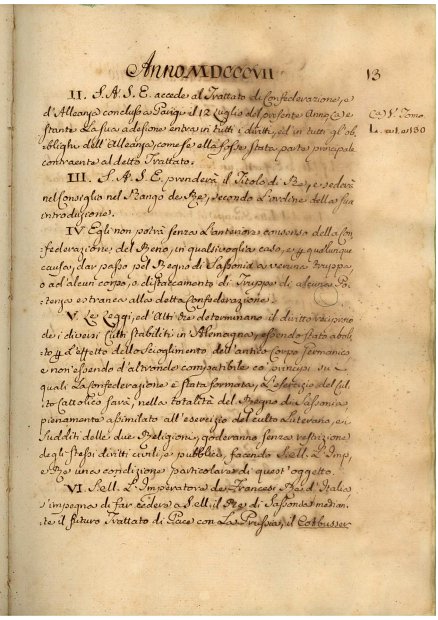 Anno MDCCCVII
13
II. S. A. S. E. accede al Trattato di Confederazione, e
d'Alleanza concluso a Parigi il 12 Luglio del presente Anno (a) e
stante la sua adesione entra in tutti i diritti, ed in tutti gl'ob-
blighi dell'Alleanza, come se ella fosse stata parte principale
contraente al detto Trattato.
(a) V. Tomo
L. 130
III. S. A. S. E. prenderà il Titolo di Re, e sederà
nel Consiglio nel Rango de Re, secondo l'ordine della sua
introduzione.
IV Egli non potrà senza l'anteriore consenso della Con-
federazione del Reno, in qualsivoglia caso, e q qualunque
causa, dar passo pel Regno di Sassonia a veruna Truppa,
o ad alcun corpo, o distaccamento di Truppe di alcuna Po-
tenza estranea alla detta Confederazione.
V. Le Leggi, ed Atti che determinano il diritto reciproco
de i diversi Culti stabiliti in Alemagna, essendo stato aboli-
to q l'effetto dello scioglimento dell'antico Corpo Germanico,
e non essendo d'altronde compatibile co principj su i
quali la Confederazione è stata formata, l'esercizio del Cul-
to Cattolico sarà, nella totalità del Regno di Sassonia
pienamente assimilato all'esercizio del culto Luterano, ed i
Sudditi delle due Religioni, goderanno senza restrizione
degli stessi diritti civili, e pubblici, facendo S. M. L'Imp.
e Re una condizione particolare di quest'oggetto.
VI. S. M. L'Imperatore de Francesi Re d'Italia
s'impegna di far cedere a S. M. il Re di Sassonia median-
te il futuro Trattato di Pace con La Prussia, il Cotbusser